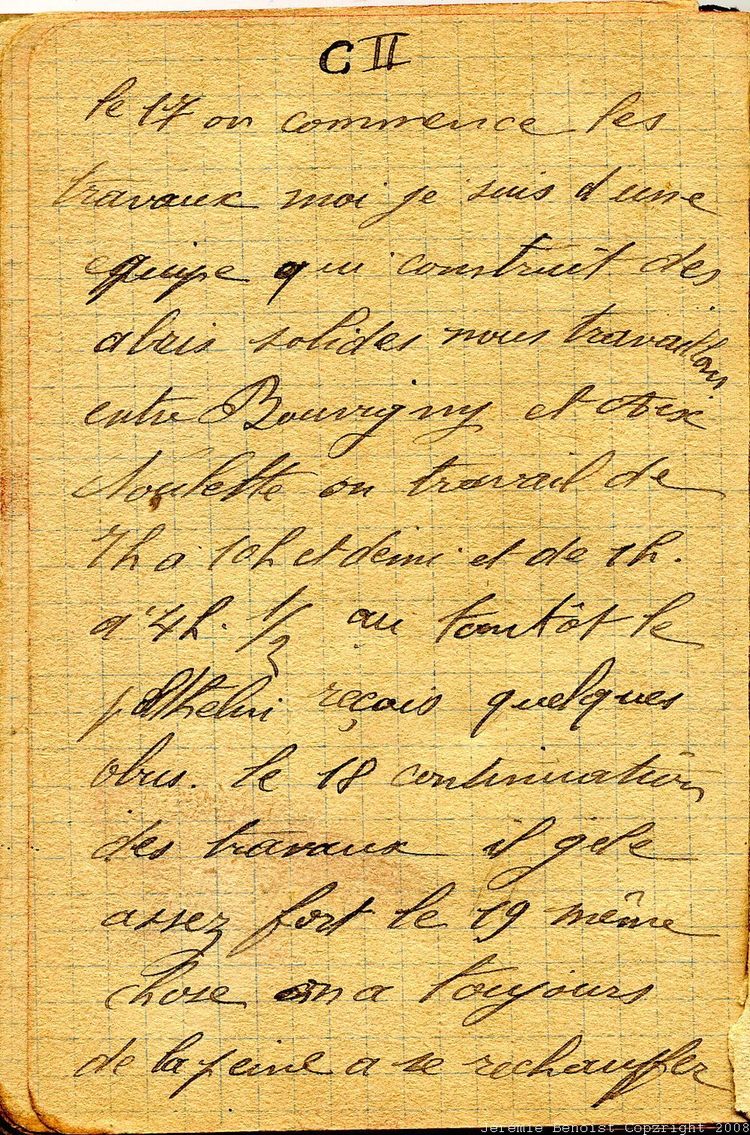 CII
le 17 on commence les
travaux moi je suis d'une
equipe qui construit des
abris solides nous travaillons
entre Bouvigny et Aix
Noulette on travail de
7h a 10h et demi et de 1h.
a 4h. 1/2 au tantôt le
reçois quelques
obus. le 18 continuation
des travaux il gele
assez fort le 19 même
chose on a toujours
de la peine a se rechauffer
Jeremie Benoist Copyright 2008